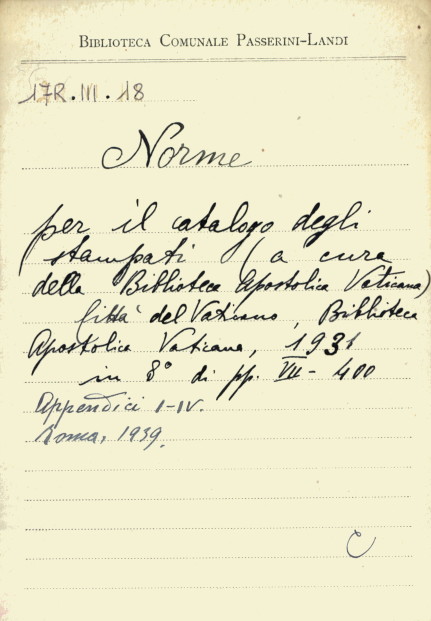 BIBLIOTECA COMUNALE PASSERINI-LANDI
17R.III.18
Norme
per il catalogo degli
stampati (a cura
della Biblioteca Apostolica Vaticana)
Città del Vaticano, Biblioteca
Apostolica Vaticana, 1931
in 8° di pp. VII-400
Appendici I-IV.
Roma, 1939.
C